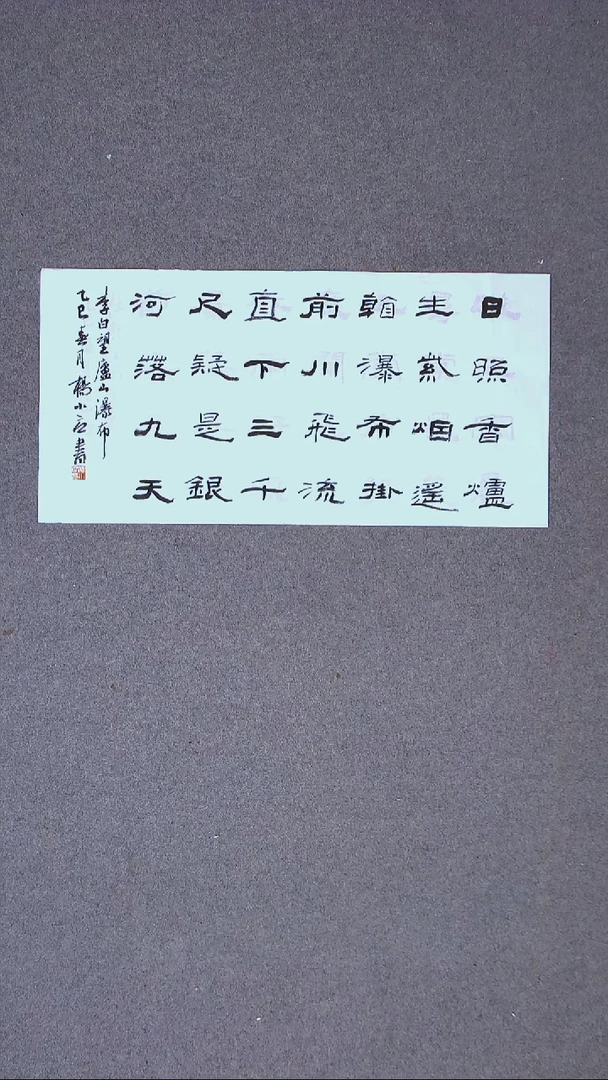 日照香爐
生紫烟遥
看瀑布掛
前川飛流
直下三千
尺疑是銀
河落九天
李白望廬山瀑布
乙巳春月楊小書